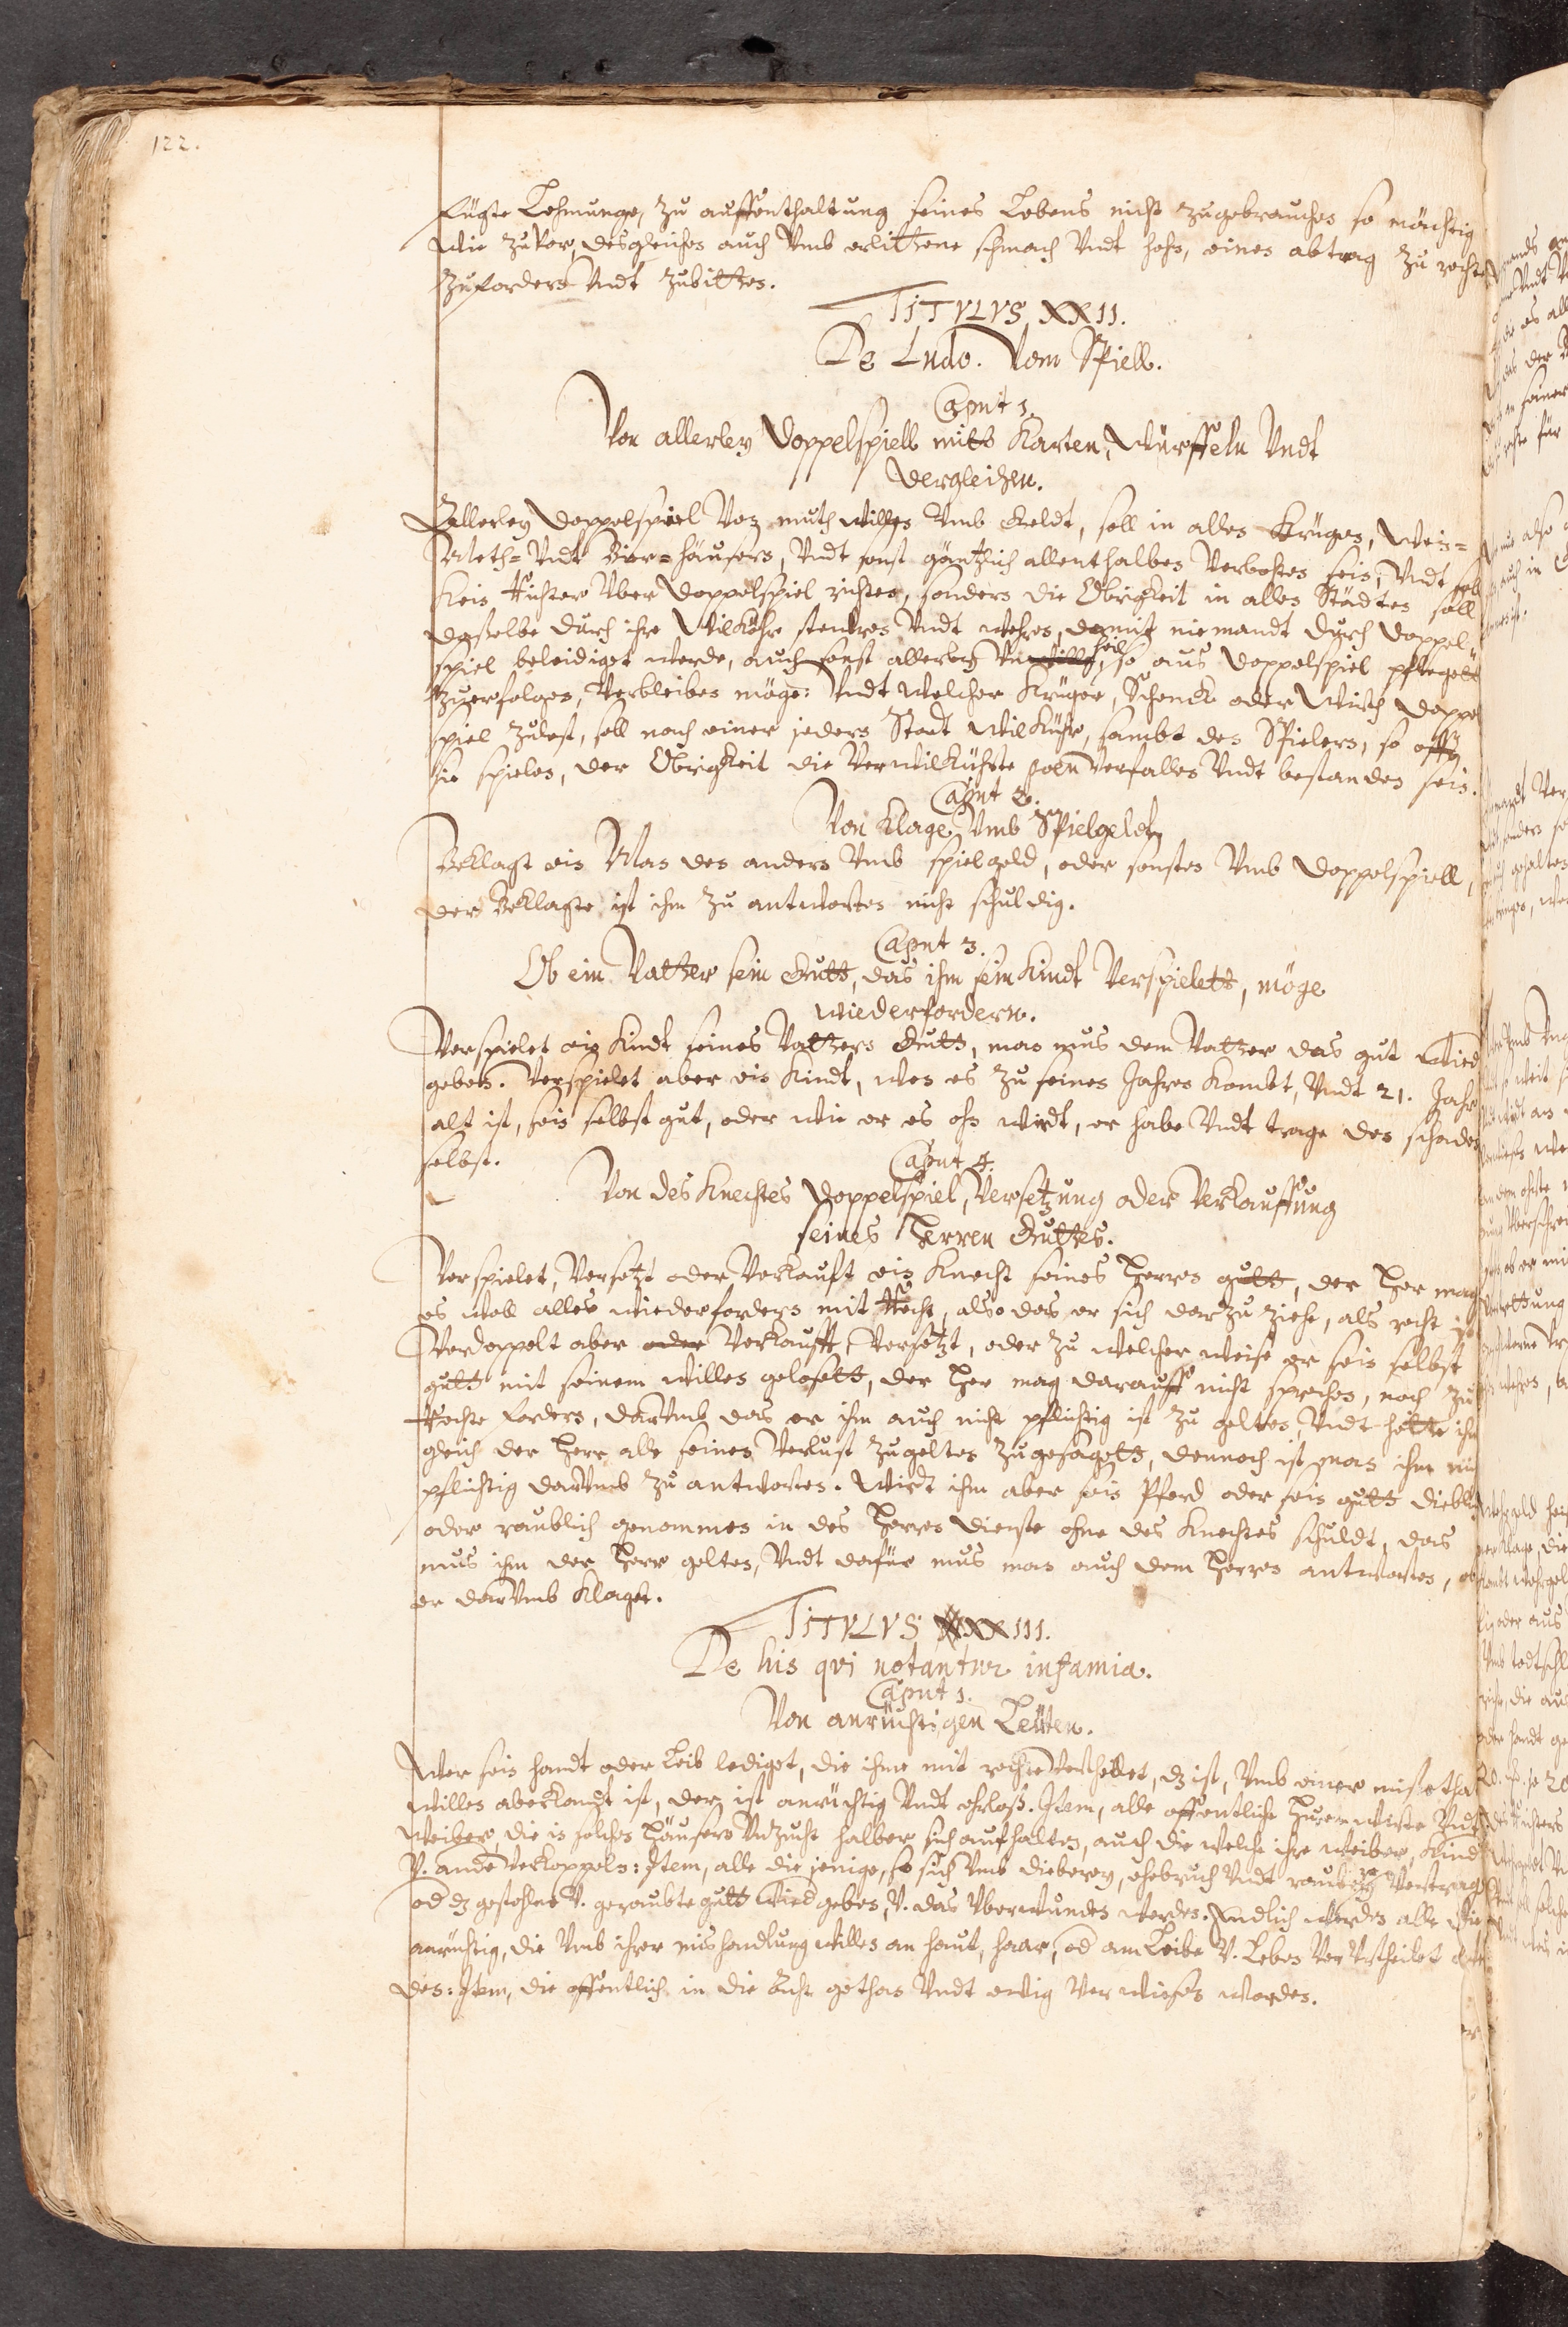 122.
fügte Lehmunge, zu auffenthaltung seines Lebens nicht zugebrauchen so mächtig
wie zuvor, desgleichen auch Vmb erlittene schmach Vndt hohn, einen abtrag zu rechte
zufordern Vndt zubitten.
TITVLVS XXII.
De Ludo. Vom Spiell.
Caput 1.
Von allerley Doppelspiell mitt Karten, Würffeln Vndt
dergleichen.
Allerley Doppelspiel Von muthwillen Vmb Geldt, soll in allen Krügen, Wein-
Meth- Vndt Bier-häusern, Vndt sonst gäntzlich allenthalben Verbothen sein, Vndt soll
Kein Richter Vber Doppelspiel richten, sondern die Obrigkeit in allen Städten soll
dasselbe durch ihre Wilköhr steuren Vndt wehren, damit niemandt durch Doppel
spiel beleidiget werde, auch sonst allerley Vnheill, so aus Doppelspiel pfleget
zuerfolgen, Verbleiben möge: Vndt welcher Krüger, Schenck oder Wirth Doppel
spiel zulest, soll nach einer jedern Stadt Wilkühr, sambt den Spielern, so offt
sie spielen, der Obrigkeit die Verwilkührte poen Verfallen Vndt bestanden sein.
Caput 2.
Von Klage Vmb Spielgeldt
Beklagt ein Man den andern Vmb spielgeld, oder sonsten Vmb Doppelspiell,
der Beklagte ist ihm zu antworten nicht schuldig.
Caput 3.
Ob ein Vatter sein Gutt, das ihm sein Kindt Verspielett, möge
wiederfordern.
Verspielet ein Kindt seines Vatters Gutt, man mus dem Vatter das gut Wied
geben. Verspielet aber ein Kindt, wen es zu seinen Jahren Kombt, Vndt 21. Jahr
alt ist, sein selbst gut, oder wie er es ohn wirdt, er habe Vndt trage den schaden
selbst.
Caput 4.
Von des Knechtes Doppelspiel, Versetzung oder Verkauffung
seines Herren Guttes.
Verspielet, Versetzt oder Verkauft ein Knecht seines Herren gutt, der Her mag
es woll alles wiederfordern mit Recht, also das er sich darzu ziehe, als recht ist
Verdoppelt aber oder Verkaufft, Versetzt, oder zu welcher weise er sein selbst
gutt mit seinem willen gelosett, der Her mag darauff nicht sprechen, noch zu
Rechte fordern, darVmb das er ihm auch nicht pflichtig ist zu gelten, Vndt hette ihm
gleich der Herr alle seinen Verlust zugelten zugesagett, dennoch ist man ihm nicht
pflichtig darVmb zu antworten. Wirdt ihm aber sein Pferd oder sein gutt dieblich
oder raublich genommen in des Herren dienste ohne des Knechtes schuldt, das
mus ihm der Herr gelten, Vndt dafür mus man auch dem Herren antworten, ob
er darVmb Klaget.
TITVLVS XXIII.
De his qvi notantur infamia.
Caput 1.
Von anrüchtigen Leüten.
Wer sein handt oder Leib lediget, die ihme mit rechte Vertheilet, dz ist, Vmb einer missethat
willen aberkandt ist, der ist anrüchtig Vndt ehrloß. Item, alle offentliche Hurenwirte Vnd
Weiber, die in solchen Häusern Vnzucht halber sich aufhalten, auch die welche ihre weiber, Kind
V. ande Verkoppeln: Item, alle die jenige, so sich Vmb dieberey, ehebruch Vndt rauberey Vertragen
od dz gestohlne V. geraubte gutt Wied geben, V. das Vberwunden werden. Endlich werden alle die
anrüchtig, die Vmb ihrer mishandlung willen an haut, haar, od am Leibe V. Leben VerVrtheilet
den: Item, die offentlich in die Acht gethan Vndt ewig Verwiesen werden.